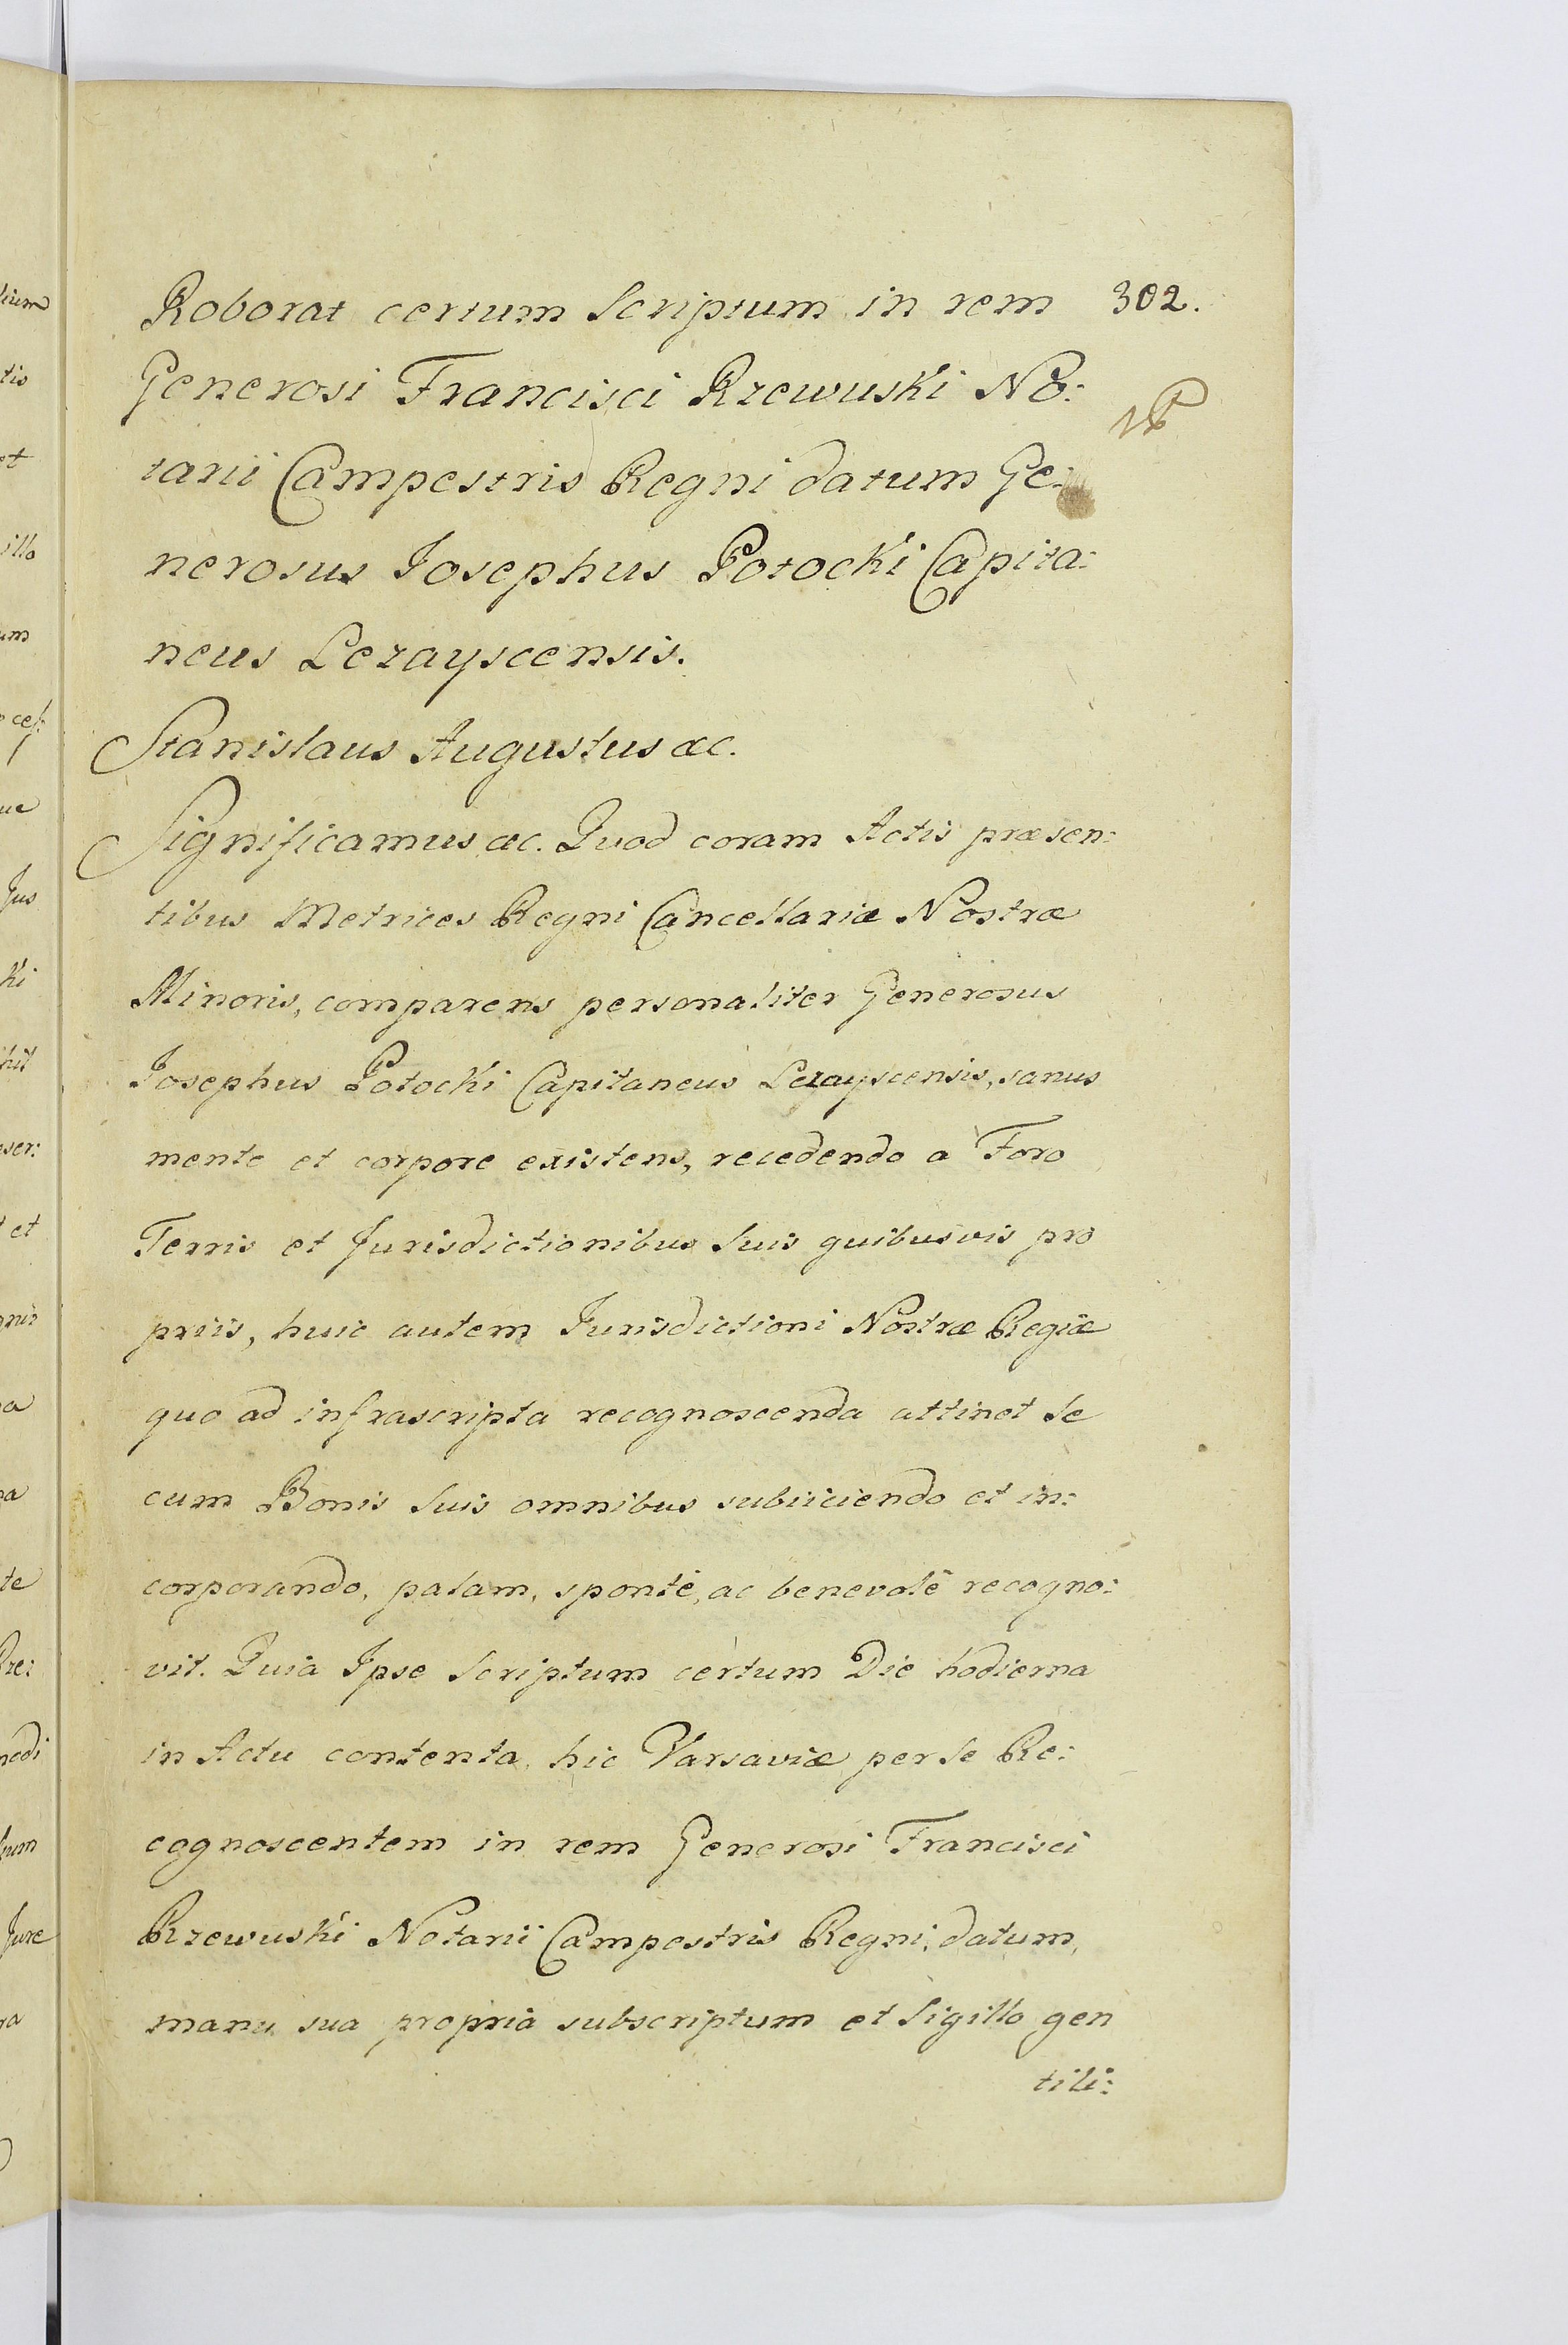 Roborat certum Scriptum in rem 302.
Generosi Francisci Rzewuski No:
tarii Campestris Regni datum Ge:
nerosus Josephus Potocki Capita:
neus Lezayscensis.
Stanislaus Augustus &c.
Significamus &c. Quod coram Actis præsen:
tibus Metrices Regni Cancellariæ Nostræ
Minoris, comparens personaliter Generosus
Josephus Potocki Capitaneus Lezayscensis, sanus
mente et corpore existens, recedendo a Foro
Terris et Jurisdictionibus Suis quibusvis pro
priis, huic autem Jurisdictioni Nostræ Regiæ
quo ad infrascripta recognoscenda attinet Se
cum Bonis Suis omnibus subiiciendo et in:
corporando, palam, sponte, ac benevolè recogno:
vit. Quia Ipse Scriptum certum Die hodierna
in Actu contenta, hic Varsaviæ per Se Re:
cognoscentem in rem Generosi Francisci
Rzewuski Notarii Campestris Regni, datum,
manu sua propria subscriptum et Sigillo gen
tili: